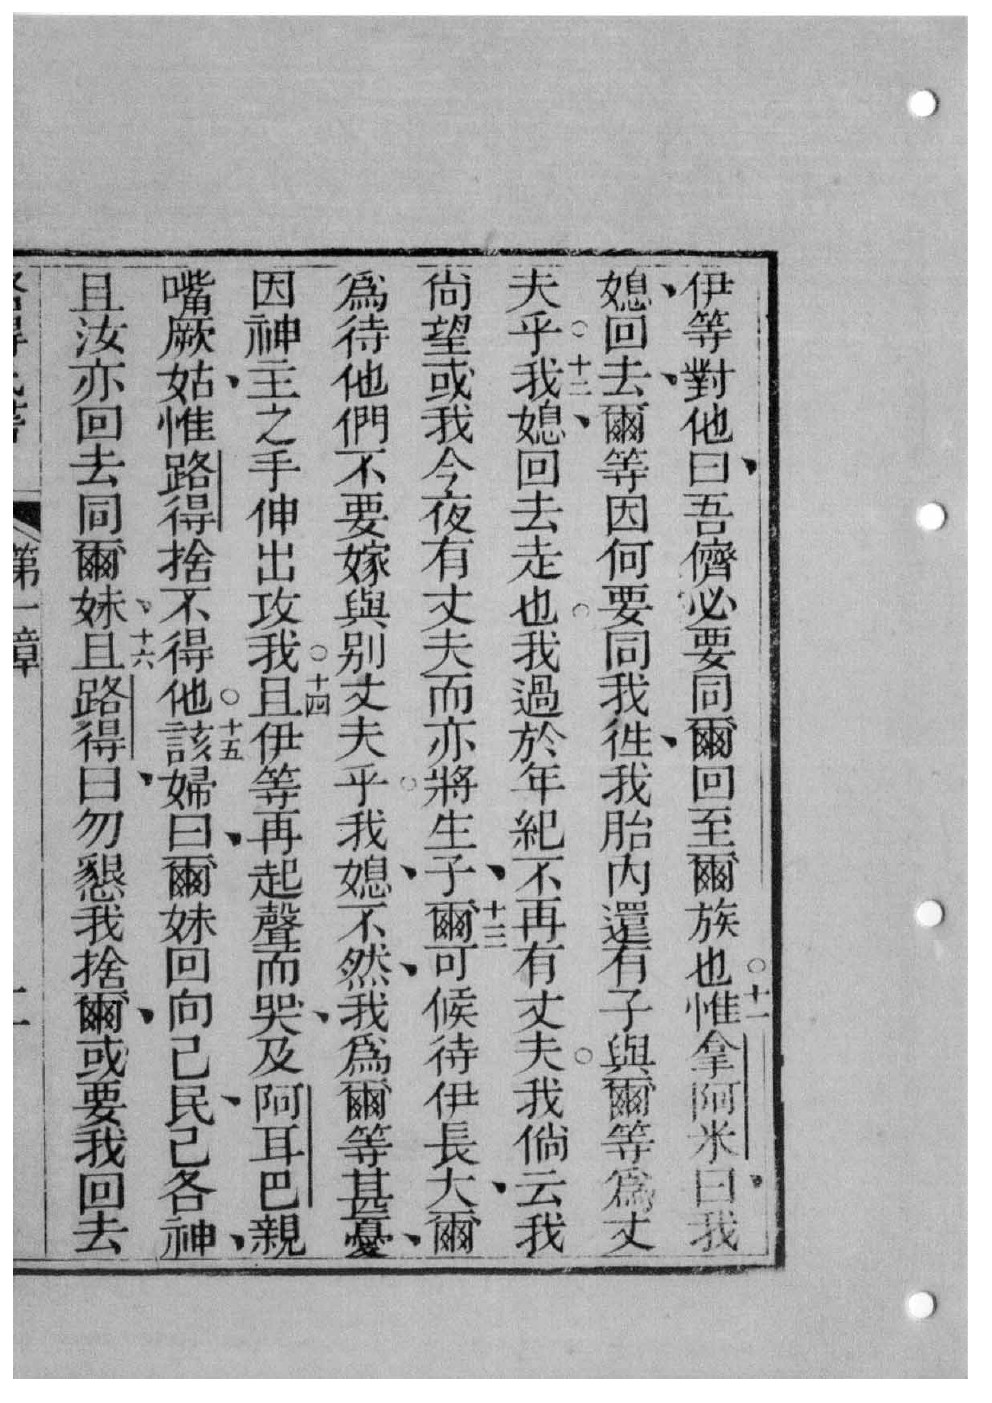 伊等對他曰、吾儕必要同爾回至爾族也。十一惟拿阿米曰、我
媳、回去、爾等因何要同我徃、我胎內還有子與爾等爲丈
夫乎。十二我媳、回去走也。我過於年紀不再有丈夫。我倘云我
尚望或我今夜有丈夫而亦將生子、十三爾可候待伊長大、爾
爲待他們不要嫁與别丈夫乎。我媳、不然、我爲爾等甚憂、
因神主之手伸出攻我。十四且伊等再起聲而哭、及阿耳巴親
嘴厥姑、惟路得捨不得他。十五該婦曰、爾妹回向己民、己各神、
且汝亦回去同爾妹、十六且路得曰、勿懇我捨爾、或要我回去
第一章
二